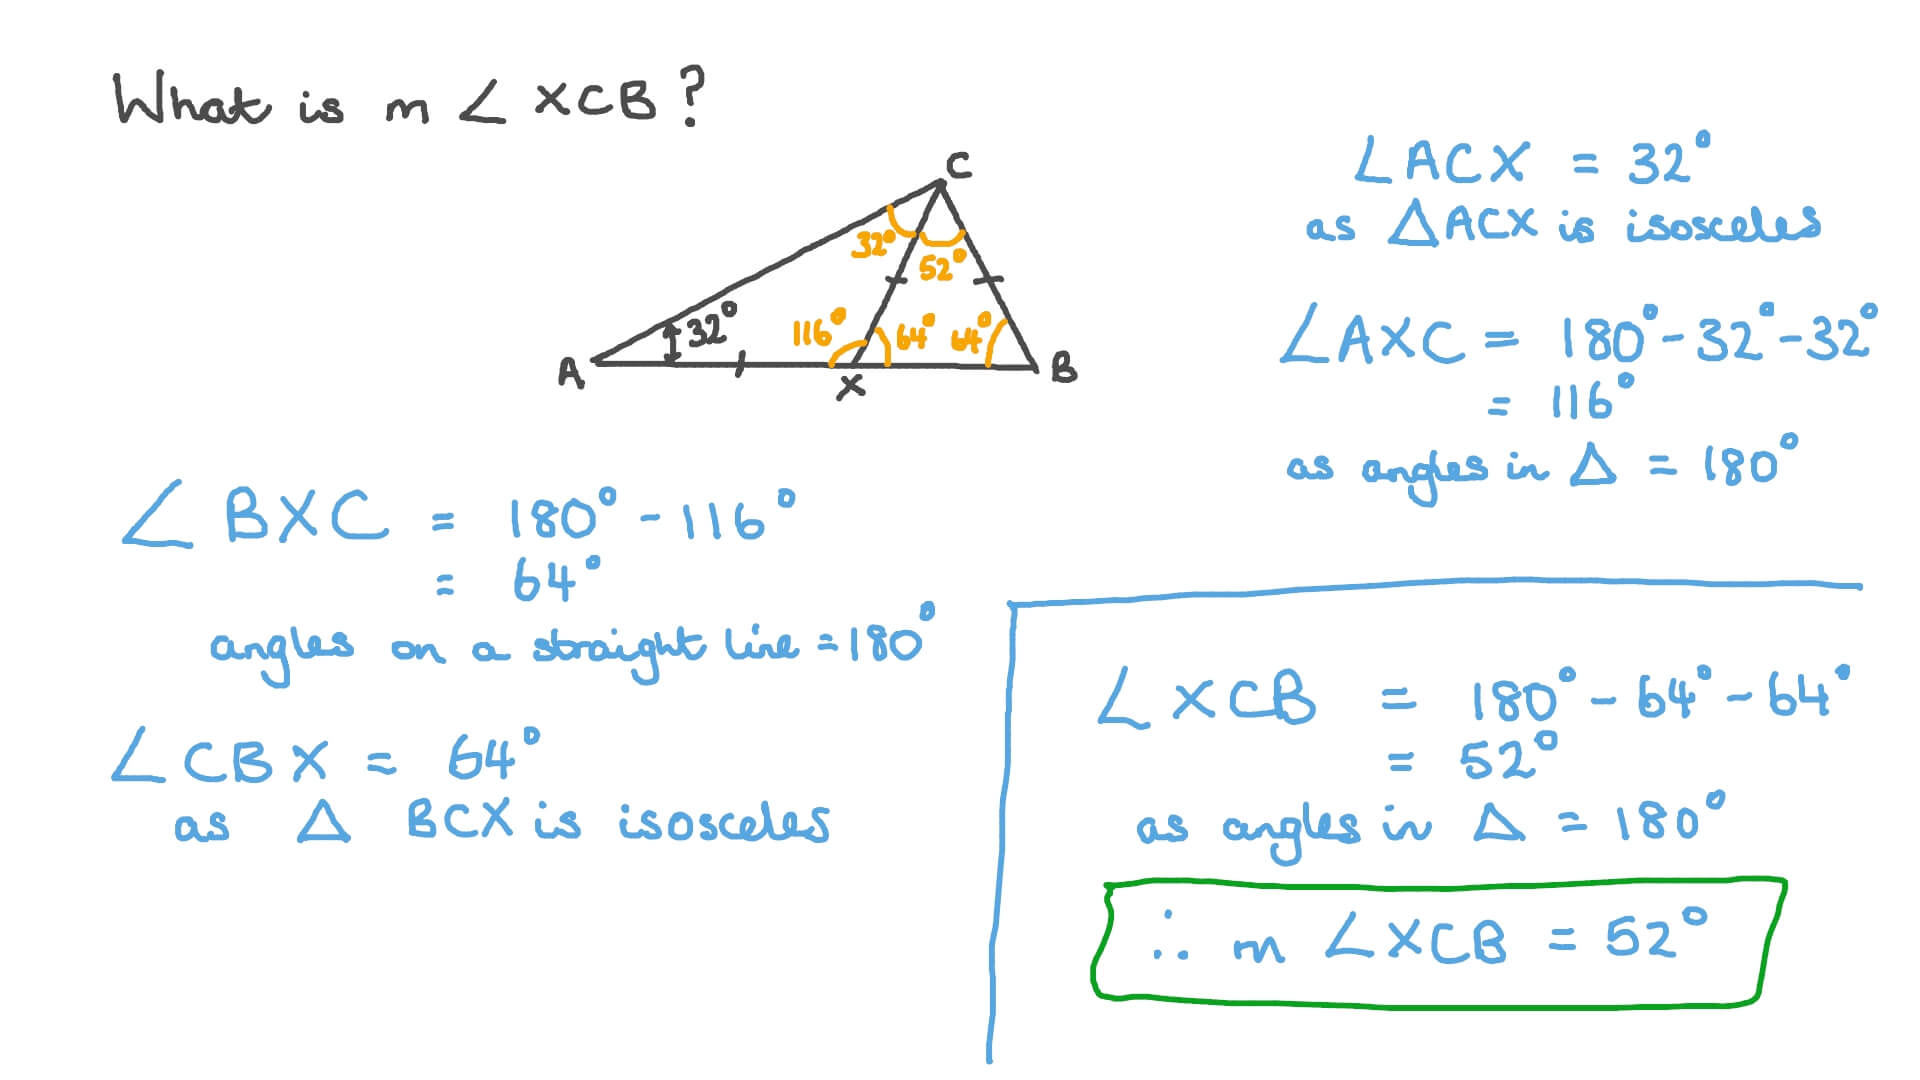 What is m ∠ XCB?
C
32°
52°
32°
116°
64°
64°
A
X
B
∠ACX = 32°
as △ACX is isosceles
∠AXC = 180° - 32° - 32°
= 116°
as angles in △ = 180°
∠BXC = 180° - 116°
= 64°
angles on a straight line = 180°
∠CBX = 64°
as △ BCX is isosceles
∠XCB = 180° - 64° - 64°
= 52°
as angles in △ = 180°
∴ m ∠XCB = 52°